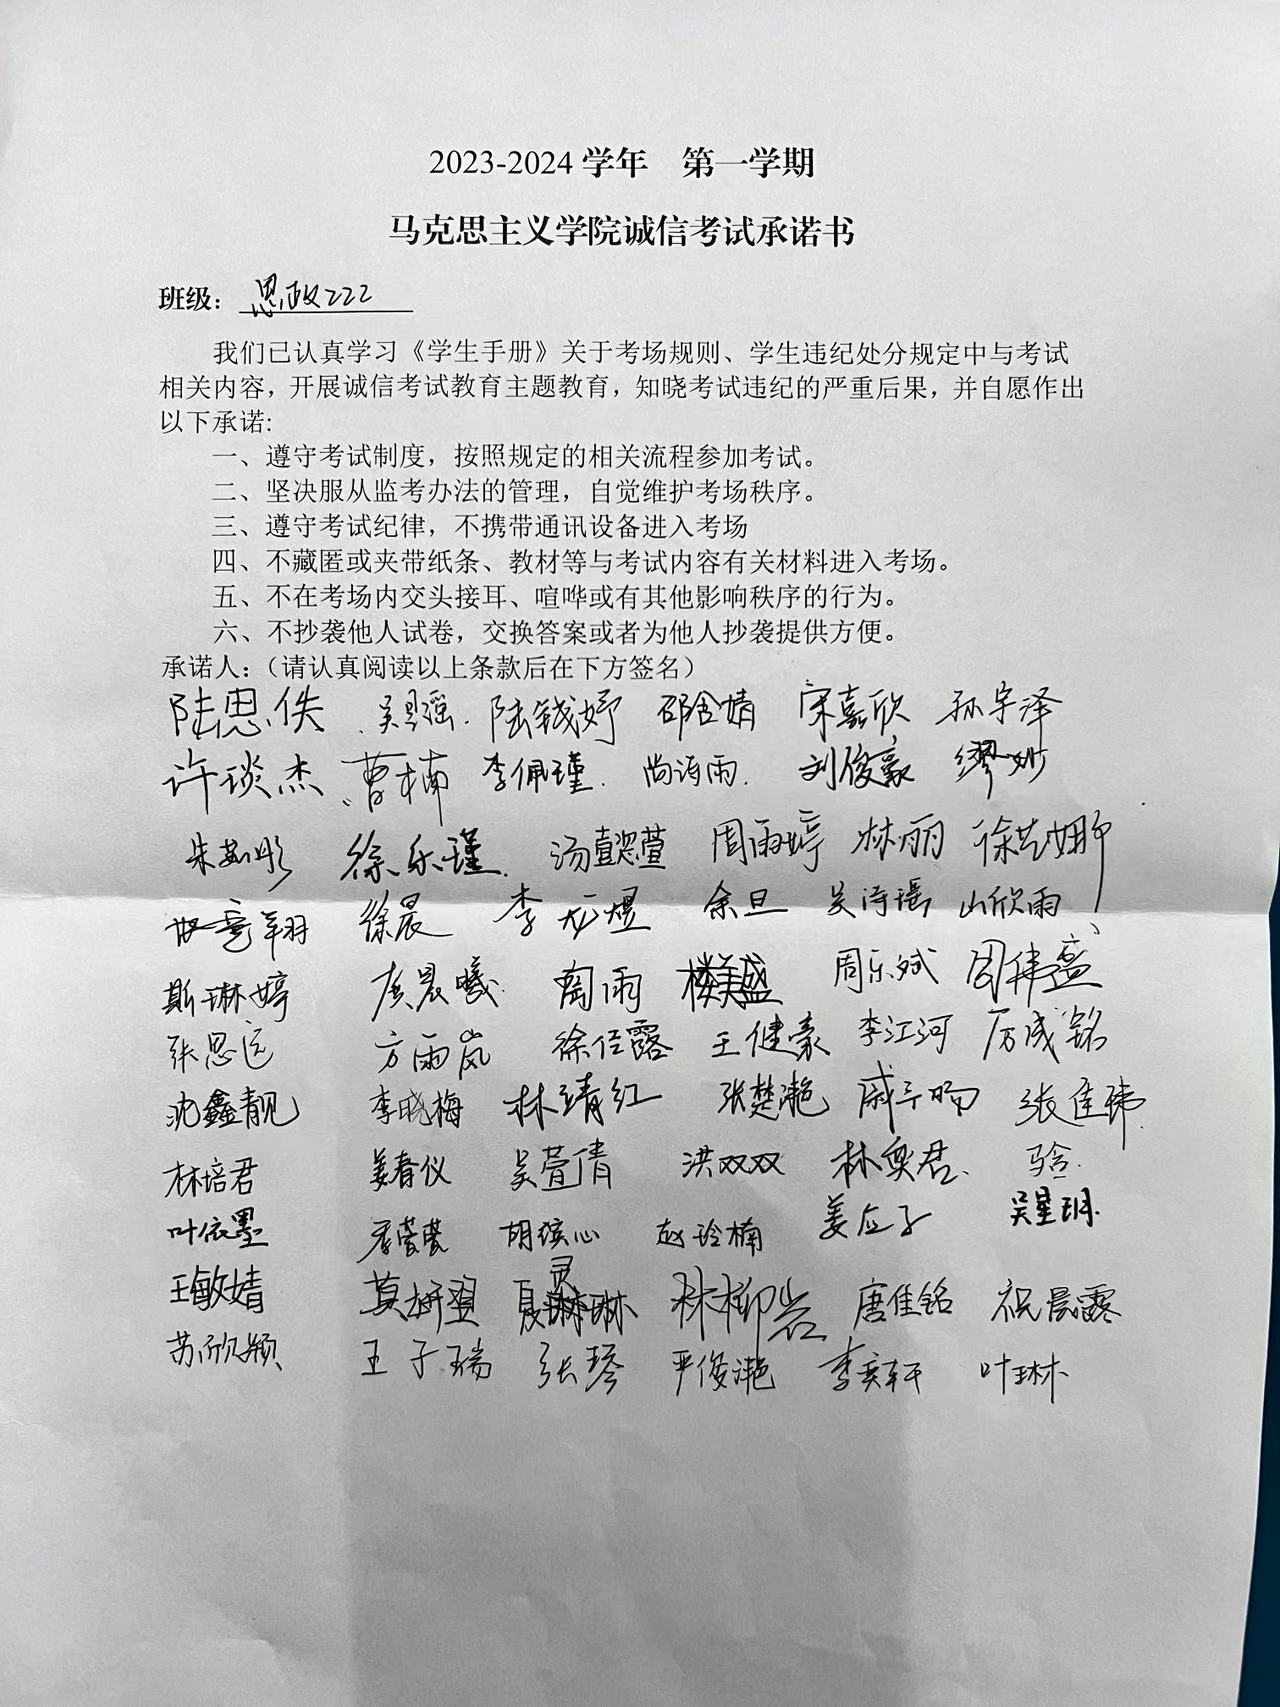 2023-2024 学年 第一学期
马克思主义学院诚信考试承诺书
班级：思政222
我们已认真学习《学生手册》关于考场规则、学生违纪处分规定中与考试
相关内容，开展诚信考试教育主题教育，知晓考试违纪的严重后果，并自愿作出
以下承诺:
一、遵守考试制度，按照规定的相关流程参加考试。
二、坚决服从监考办法的管理，自觉维护考场秩序。
三、遵守考试纪律，不携带通讯设备进入考场
四、不藏匿或夹带纸条、教材等与考试内容有关材料进入考场。
五、不在考场内交头接耳、喧哗或有其他影响秩序的行为。
六、不抄袭他人试卷，交换答案或者为他人抄袭提供方便。
承诺人：（请认真阅读以上条款后在下方签名）
陆思佚 陆钱妤 邵含婧 宋嘉欣 孙宇泽
许琰杰 曹楠 李佩瑾 尚海雨 刘俊豪 缪妙
徐乐瑾 汤懿萱 周雨婷 林丽
徐晨 李龙煜 余旦 吴诗瑶 山欣雨
斯琳婷 陶雨 楼美盛 周乐斌 周伟盛
张思远 方雨岚 徐佳露 王健豪 李江河 厉成铭
沈鑫靓 李晓梅 林靖红 张楚滟 张佳玮
林培君 姜春仪 吴萱倩 洪双双 林奥君
叶依墨 胡缤心 赵玲楠 姜应子 吴星玥
王敏婧 夏灵琳 林柳岩 唐佳铭 祝晨露
苏欣颖 王子瑞 张琴 严俊滟 李奕轩 叶琳